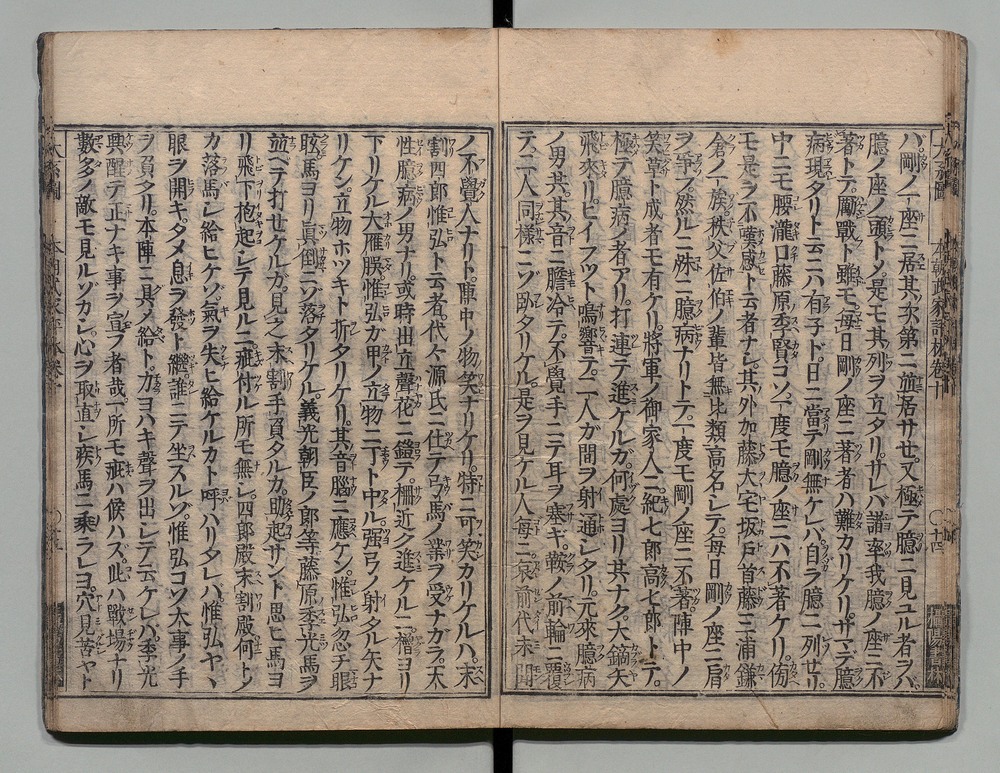 ハ剛ノ一座ニ居其次第ニ並居サセ又極テ臆ニ見ユル者ヲバ
臆ノ座ノ頭トソ是モ其列ヲ立タリサレバ諸率我臆ノ座ニ不
著トテ勵戰ト雖モ毎日剛ノ座ニ著者ハ難カリケリサニテ臆
病現タリト云ニハ有子ド日ニ當テ剛無ケレバ自ラ臆ニ列セリ
中ニモ腰瀧口藤原季賢コソ一度モ臆ノ座ニハ不著ケリ傍
モ是ヲ不嘆感ト云者ナシ其外加藤大宅坂戸首藤三浦鎌
倉ノ一族秩父佐伯ノ輩皆無比類高名シテ毎日剛ノ座ニ肩
ヲ竿フ然ルニ殊ニ臆病ナリトテ一度モ剛ノ座ニ不著陣中ノ
笑草ト成者モ有ケリ將軍ノ御家人ニ紀七郎高七郎トテ
極テ臆病ノ者アリ打連テ進ケルガ何處ヨリ其ナク大鏑矢
飛來リヒイフツト鳴響テ二人ガ間ヲ射通シタリ元來臆病
ノ男共其音ニ膽冷テ不覺手ニテ耳ヲ塞キ鞍ノ前輪ニ覆
テ二人同樣ニゾ臥タリケル是ヲ見ケル人毎ニ哀前代未聞
ノ不覺人ナリト陣中ノ物笑ナリケリ特ニ可笑カリケルハ末
割四郎惟弘ト云者代々源氏ニ仕テ弓馬ノ業ヲ受ナカラ天
性臆病ノ男ナリ或時出立聲花ニ鎧テ柵近ク進ケルニ櫓ヨリ
下リケル大雁胯惟弘ガ甲ノ立物ニ丁ト中ル强弓ノ射タル矢ナ
リケン立物ホツキト折タリケリ其音腦ニ應ケン惟弘忽チ眼
眩馬ヨリ眞倒ニゾ落タリケル義光朝臣ノ郎等藤原季光馬ヲ
並ヘテ打セケルガ見之末割手負タルカ助起サント思ヒ馬ヨ
リ飛下抱起シテ見ルニ疵付ル所モ無シ四郎殿末割殿何トノ
カ落馬シ給ヒケソ氣ヲ失ヒ給ケルカト呼ハリタレバ惟弘ヤヽ
眼ヲ開キタメ息ヲ發ト繼誰ニテ坐スルゾ惟弘コソ大事ノ手
ヲ負タリ本陣ニ具メ給トカヨハキ聲ヲ出シテ云ケレバ季光
興醒テ正ナキ事ヲ宣フ者哉一所モ疵ハ候ハズ此ハ戰場ナリ
數多ノ敵モ見ルゾカシ心ヲ取直シ疾馬ニ乘ラレヨ穴見苦ヤト